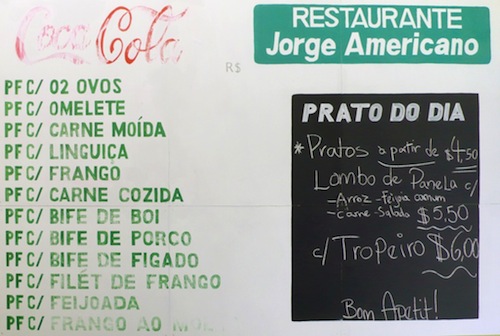 Coca Cola
RESTAURANTE
Jorge Americano
R$
PF C/ 02 OVOS
PF C/ OMELETE
PF C/ CARNE MOÍDA
PF C/ LINGUIÇA
PF C/ FRANGO
PF C/ CARNE COZIDA
PF C/ BIFE DE BOI
PF C/ BIFE DE PORCO
PF C/ BIFE DE FIGADO
PF C/ FILÉT DE FRANGO
PF C/ FEIJOADA
PF C/ FRANGO AO MOL
PRATO DO DIA
*Pratos a partir de $4,50
Lombo de Panela c/
-Arroz -Feijão comum
-Carne -Salada $5,50
c/ Tropeiro $6,00
Bom Apetit!